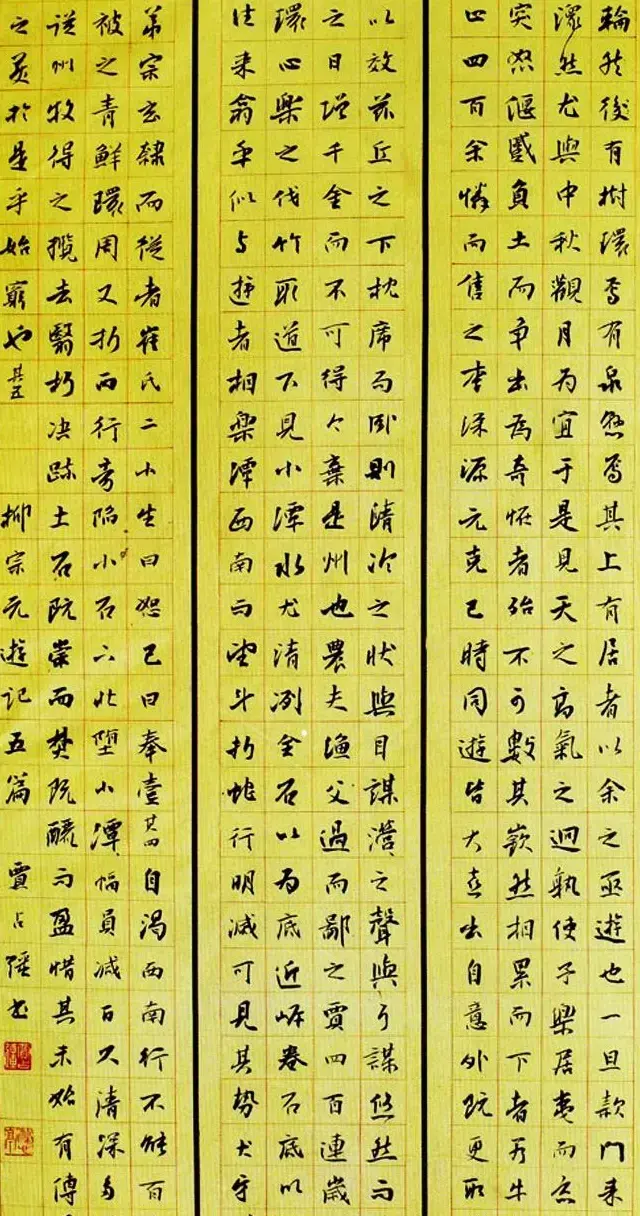 輪然後有樹環焉有泉懸焉其上有居者以余之亟遊也一旦款門來
潀然尤與中秋觀月為宜于是見天之高氣之迥孰使予樂居夷而忘
突怒偃蹇負土而争出為奇怪者殆不可數其嶔然相累而下者若牛
止四百余憐而售之李深源元克己時同遊皆大喜出自意外既更取
以效茲丘之下枕席而卧則清泠之狀與目謀瀯〻之聲與耳謀悠然而
之日增千金而不可得今棄是州也農夫漁父過而鄙之賈四百連歲
環心樂之伐竹取道下見小潭水尤清冽全石以為底近岸卷石底以
往来翕乎似与遊者相樂潭西南而望斗折蛇行明滅可見其勢犬牙
弟宗玄隸而從者崔氏二小生曰恕己曰奉壹其四自渴西南行不能百
被之青鮮環周又折西行旁陷小石下北墮小潭幅員減百尺清深多
從州牧得之攬去翳朽决疏土石既崇而焚既釃而盈惜其未始有傳
之美於是乎始窮也其五 柳宗元遊記五篇 賈占强书